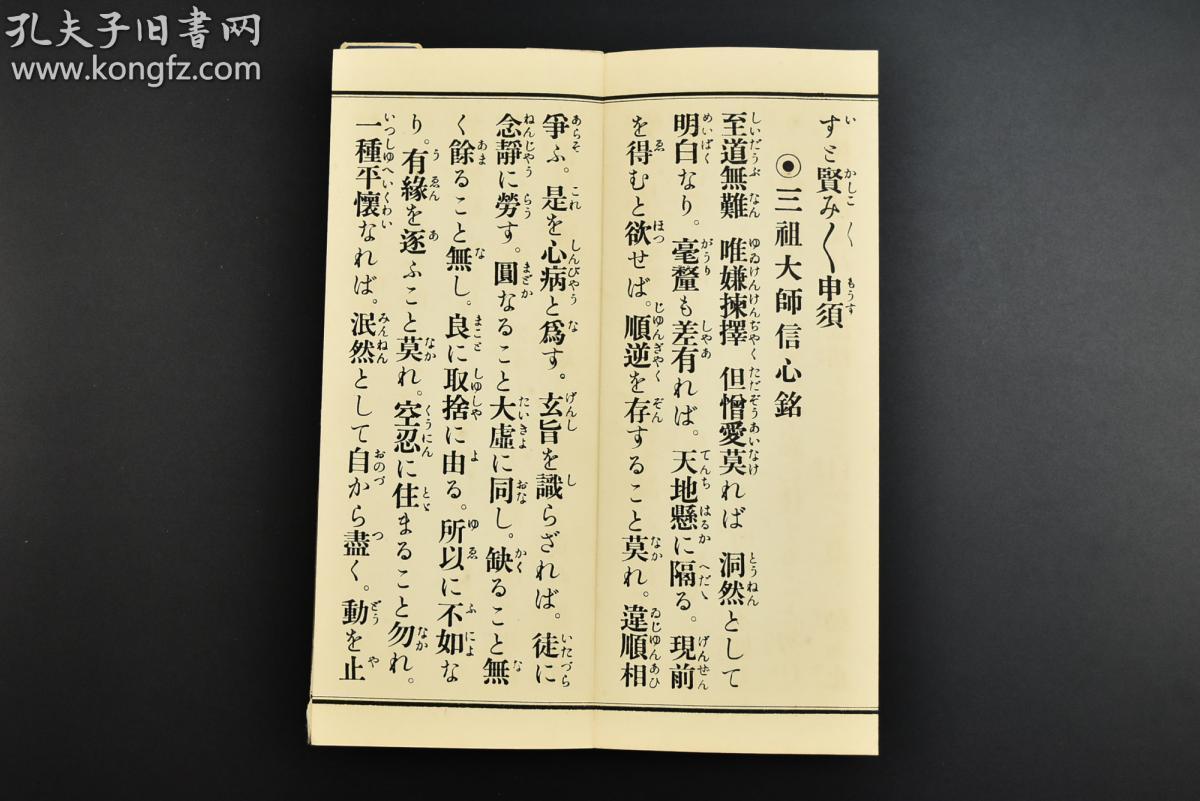 孔夫子旧书网
www.kongfz.com
すと賢み〱申須
◉三祖大師信心銘
至道無難 唯嫌揀擇 但憎愛莫れば 洞然として
明白なり。毫釐も差有れば。天地懸に隔る。現前
を得むと欲せば。順逆を存すること莫れ。違順相
爭ふ。是を心病と爲す。玄旨を識らざれば。徒に
念靜に勞す。圓なること大虛に同し。缺ること無
く餘ること無し。良に取捨に由る。所以に不如な
り。有緣を逐ふこと莫れ。空忍に住まること勿れ。
一種平懷なれば。泯然として自から盡く。動を止